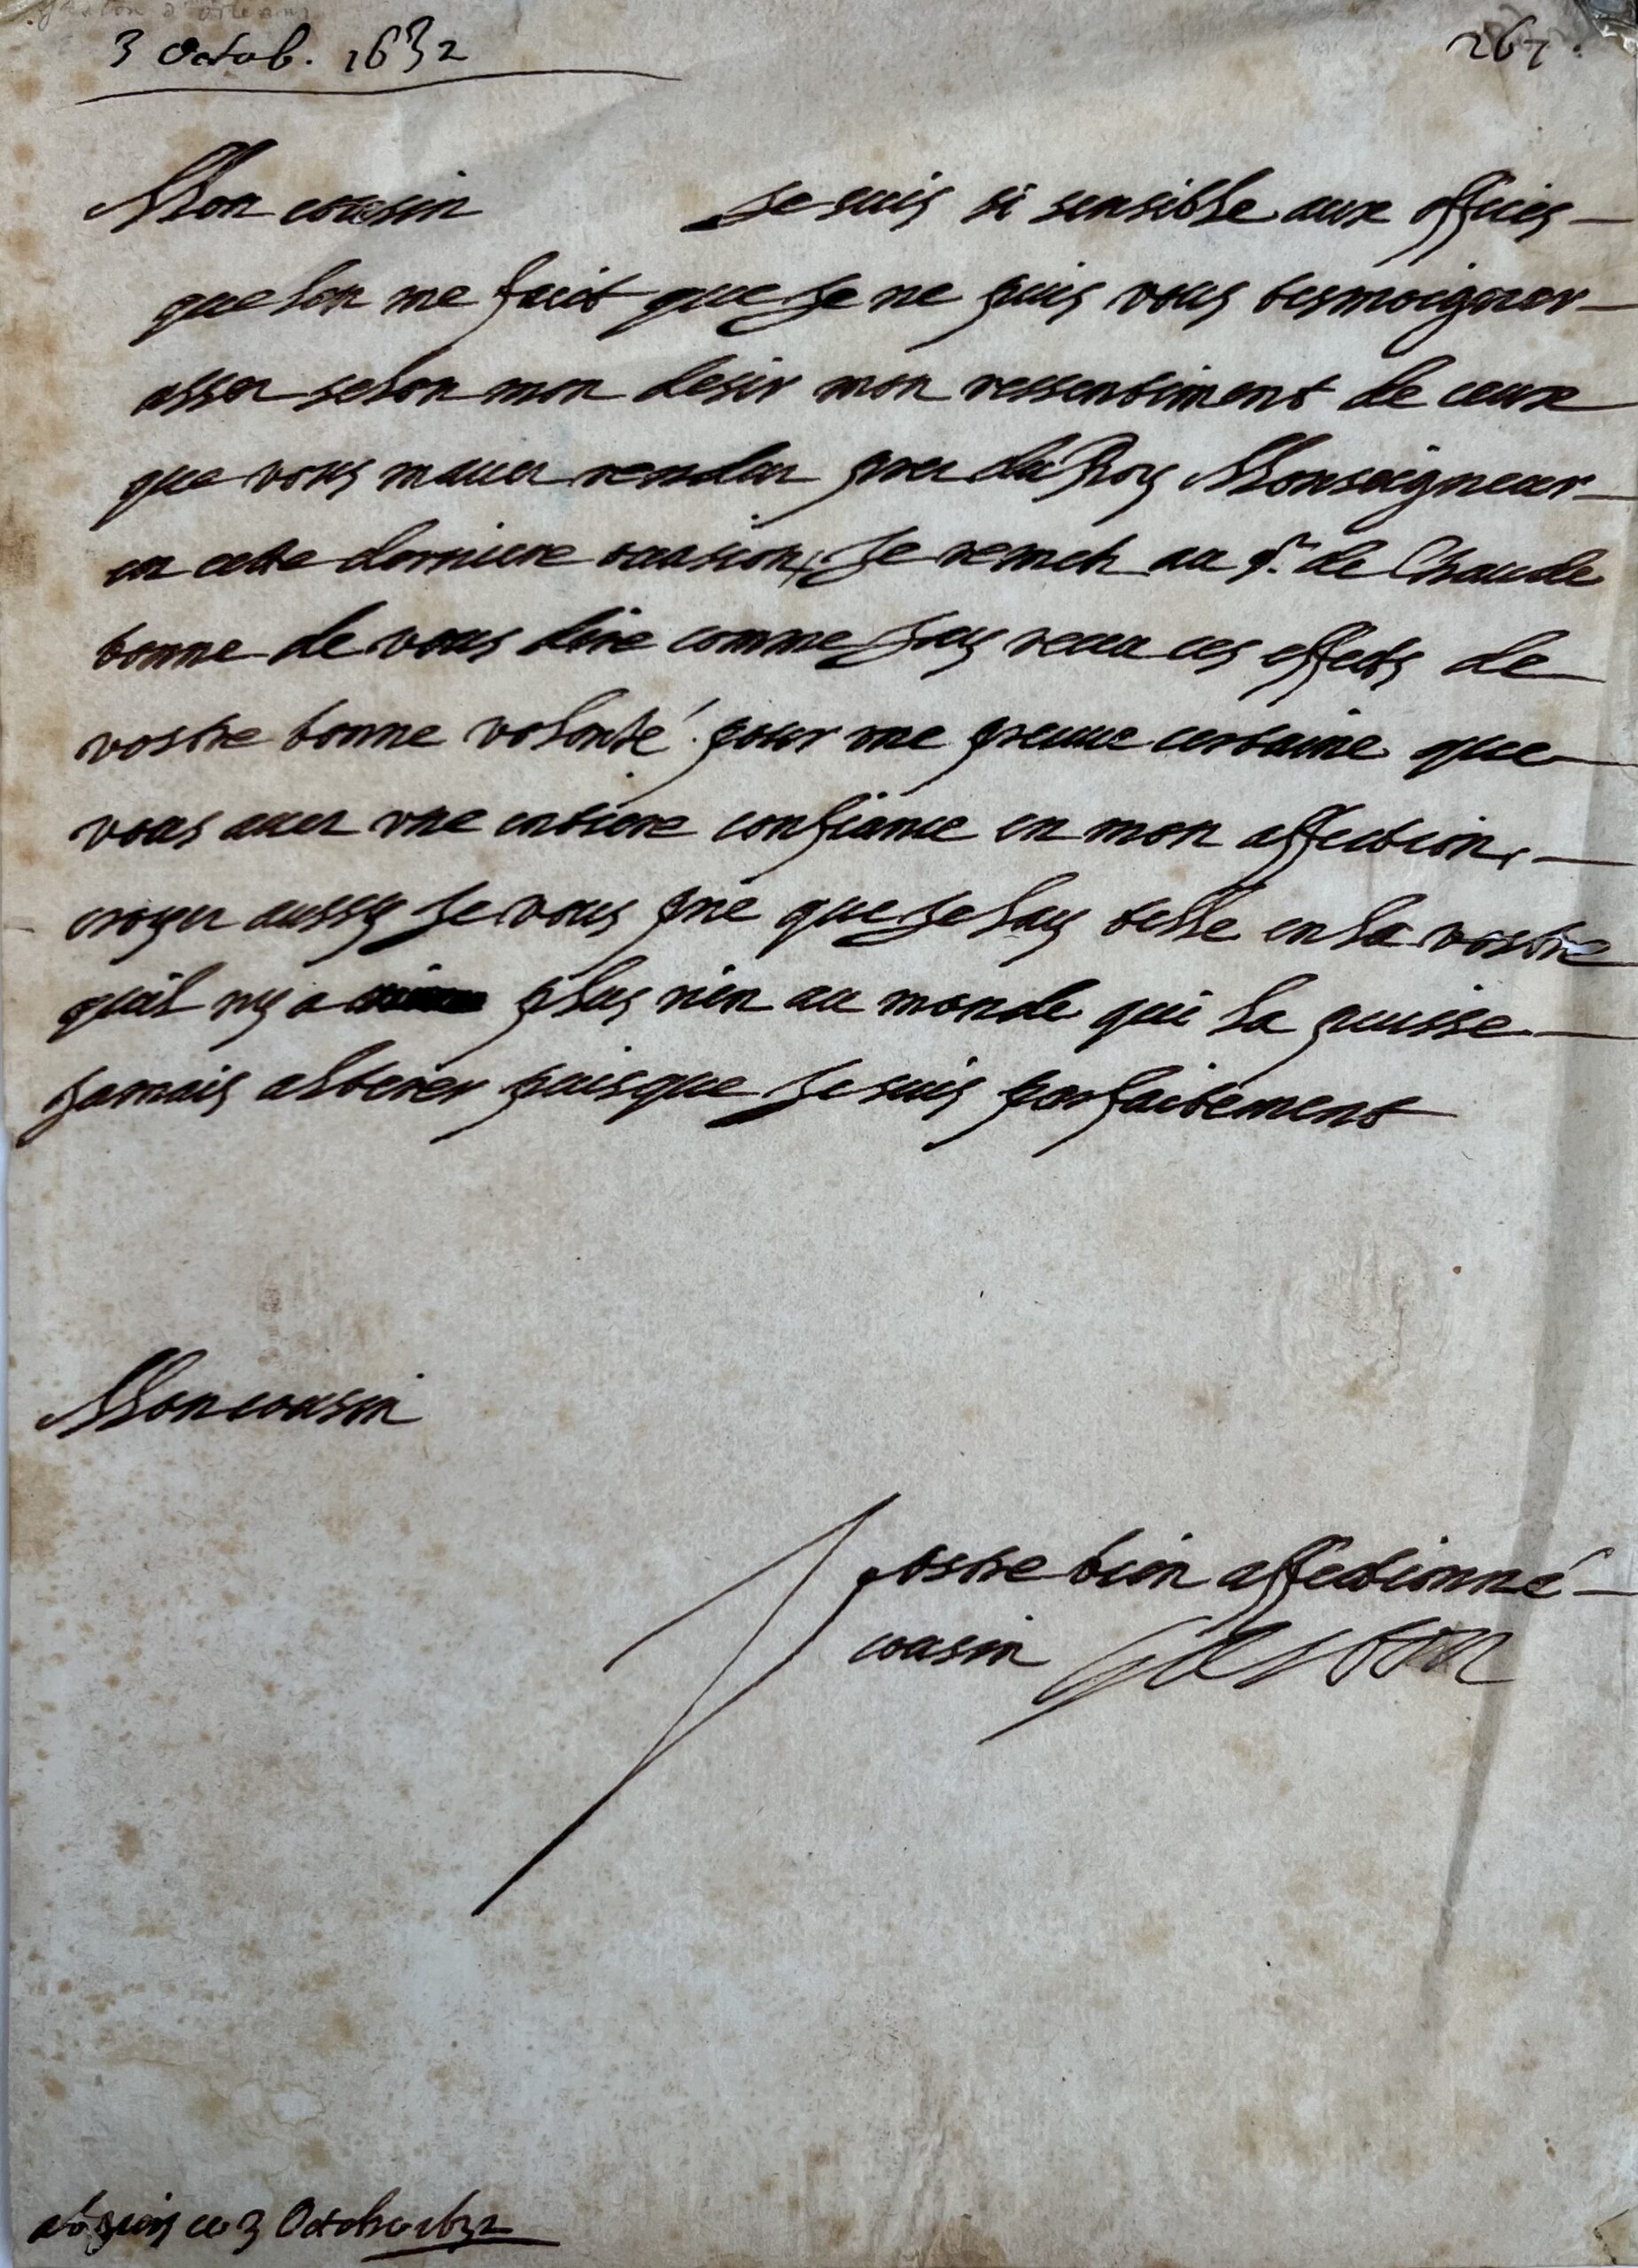 Gaston d'orleans
3 Octob. 1632
267.
Mon cousin Je suis si sensible aux offices
que lon me faict que Je ne puis vous tesmoigner
assez selon mon desir mon ressentiment de ceux
que vous mauez rendus prez du Roy Monseigneur
en cette derniere occasion, Je remets au Sr. de Chaude
bonne de vous dire comme Jay receu ces effects de
vostre bonne volonté pour vne preuue certaine que
vous auez vne entiere confiance en mon affection,
croyez aussy Je vous prie que Je lay telle en la vostre
quil ny a plus rien au monde qui la puisse
Jamais alterer puisque Je suis parfaitement
Mon cousin
Vostre bien affectionné
cousin Gaston
ce 3 Octobre 1632